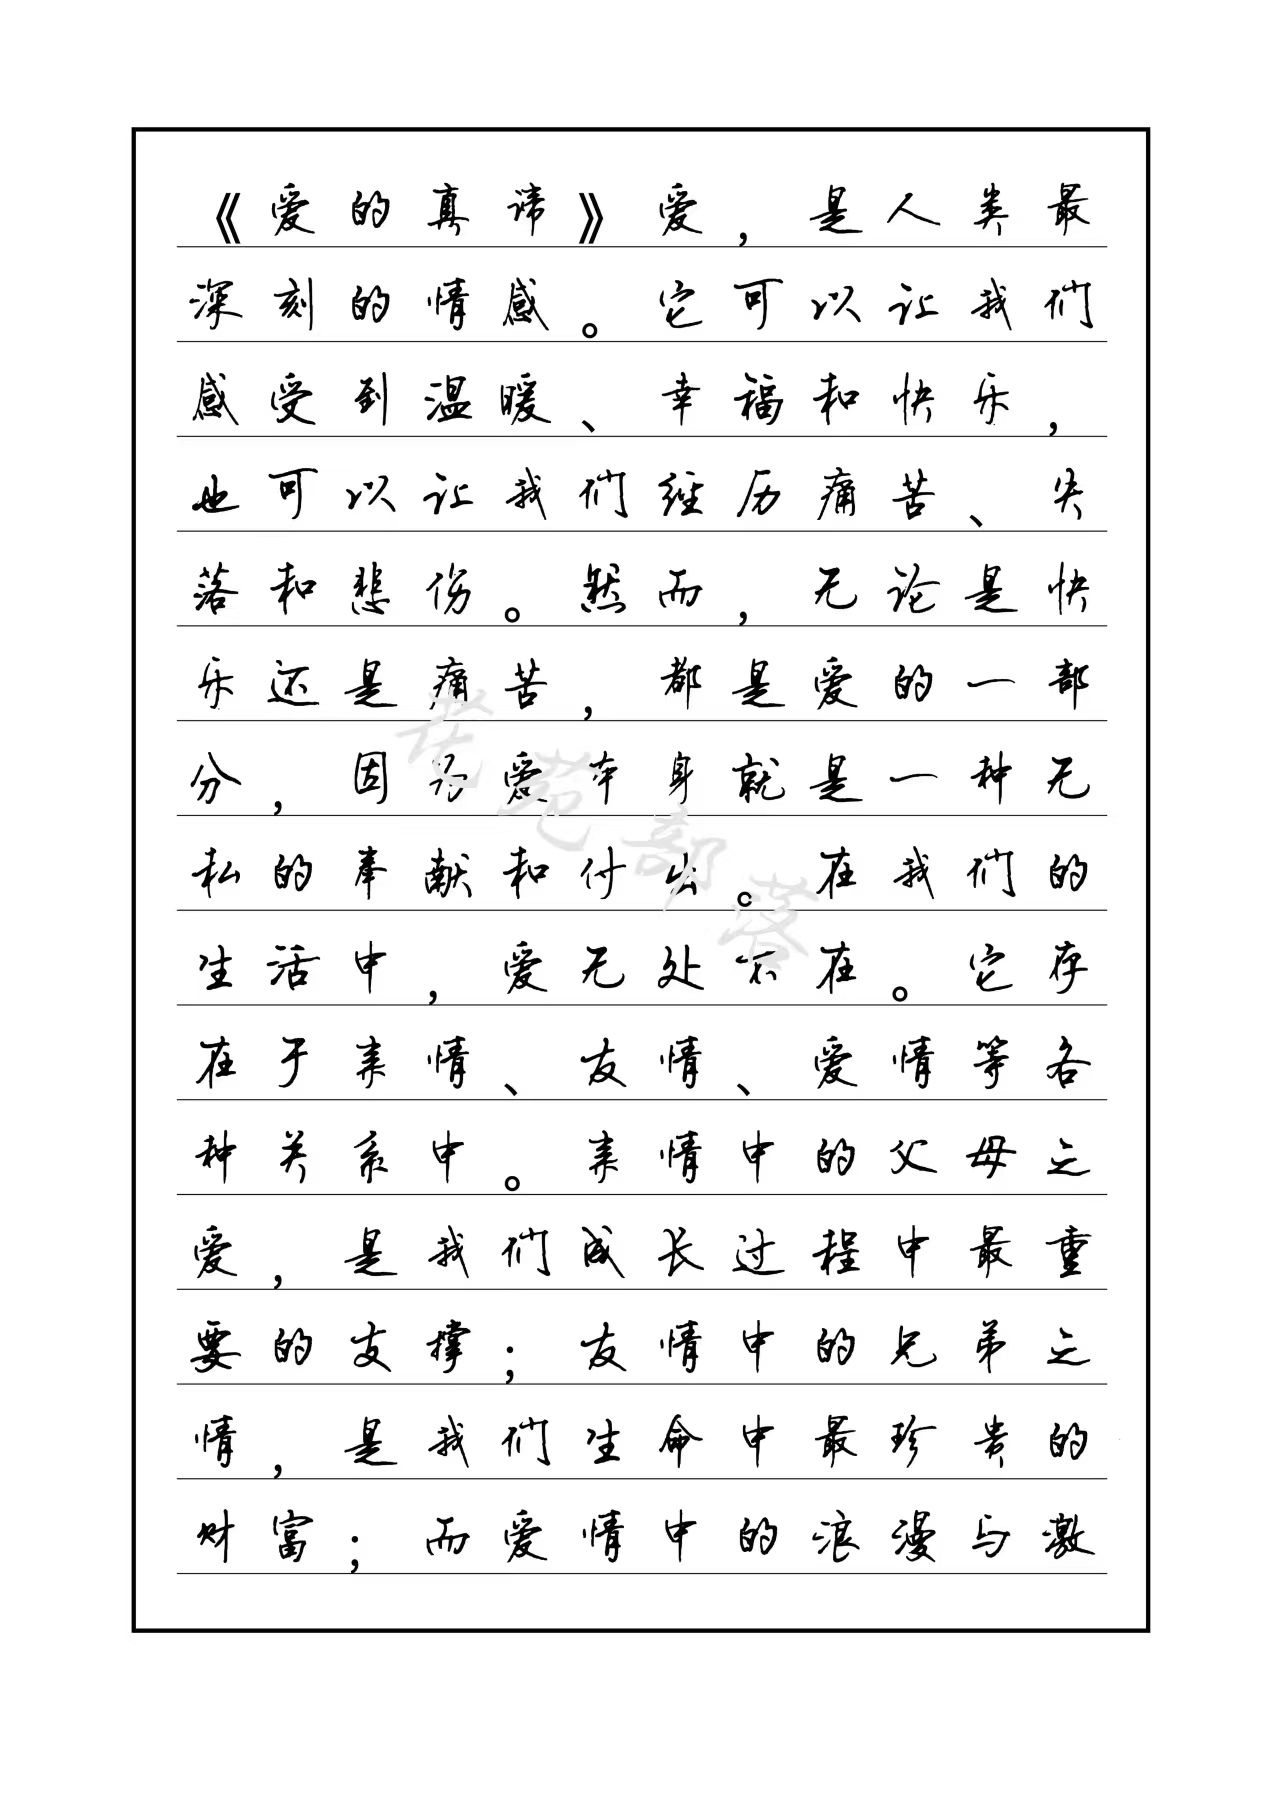 《爱的真谛》爱，是人类最
深刻的情感。它可以让我们
感受到温暖、幸福和快乐，
也可以让我们经历痛苦、失
落和悲伤。然而，无论是快
乐还是痛苦，都是爱的一部
分，因为爱本身就是一种无
私的奉献和付出。在我们的
生活中，爱无处不在。它存
在于亲情、友情、爱情等各
种关系中。亲情中的父母之
爱，是我们成长过程中最重
要的支撑；友情中的兄弟之
情，是我们生命中最珍贵的
财富；而爱情中的浪漫与激
花苑部落